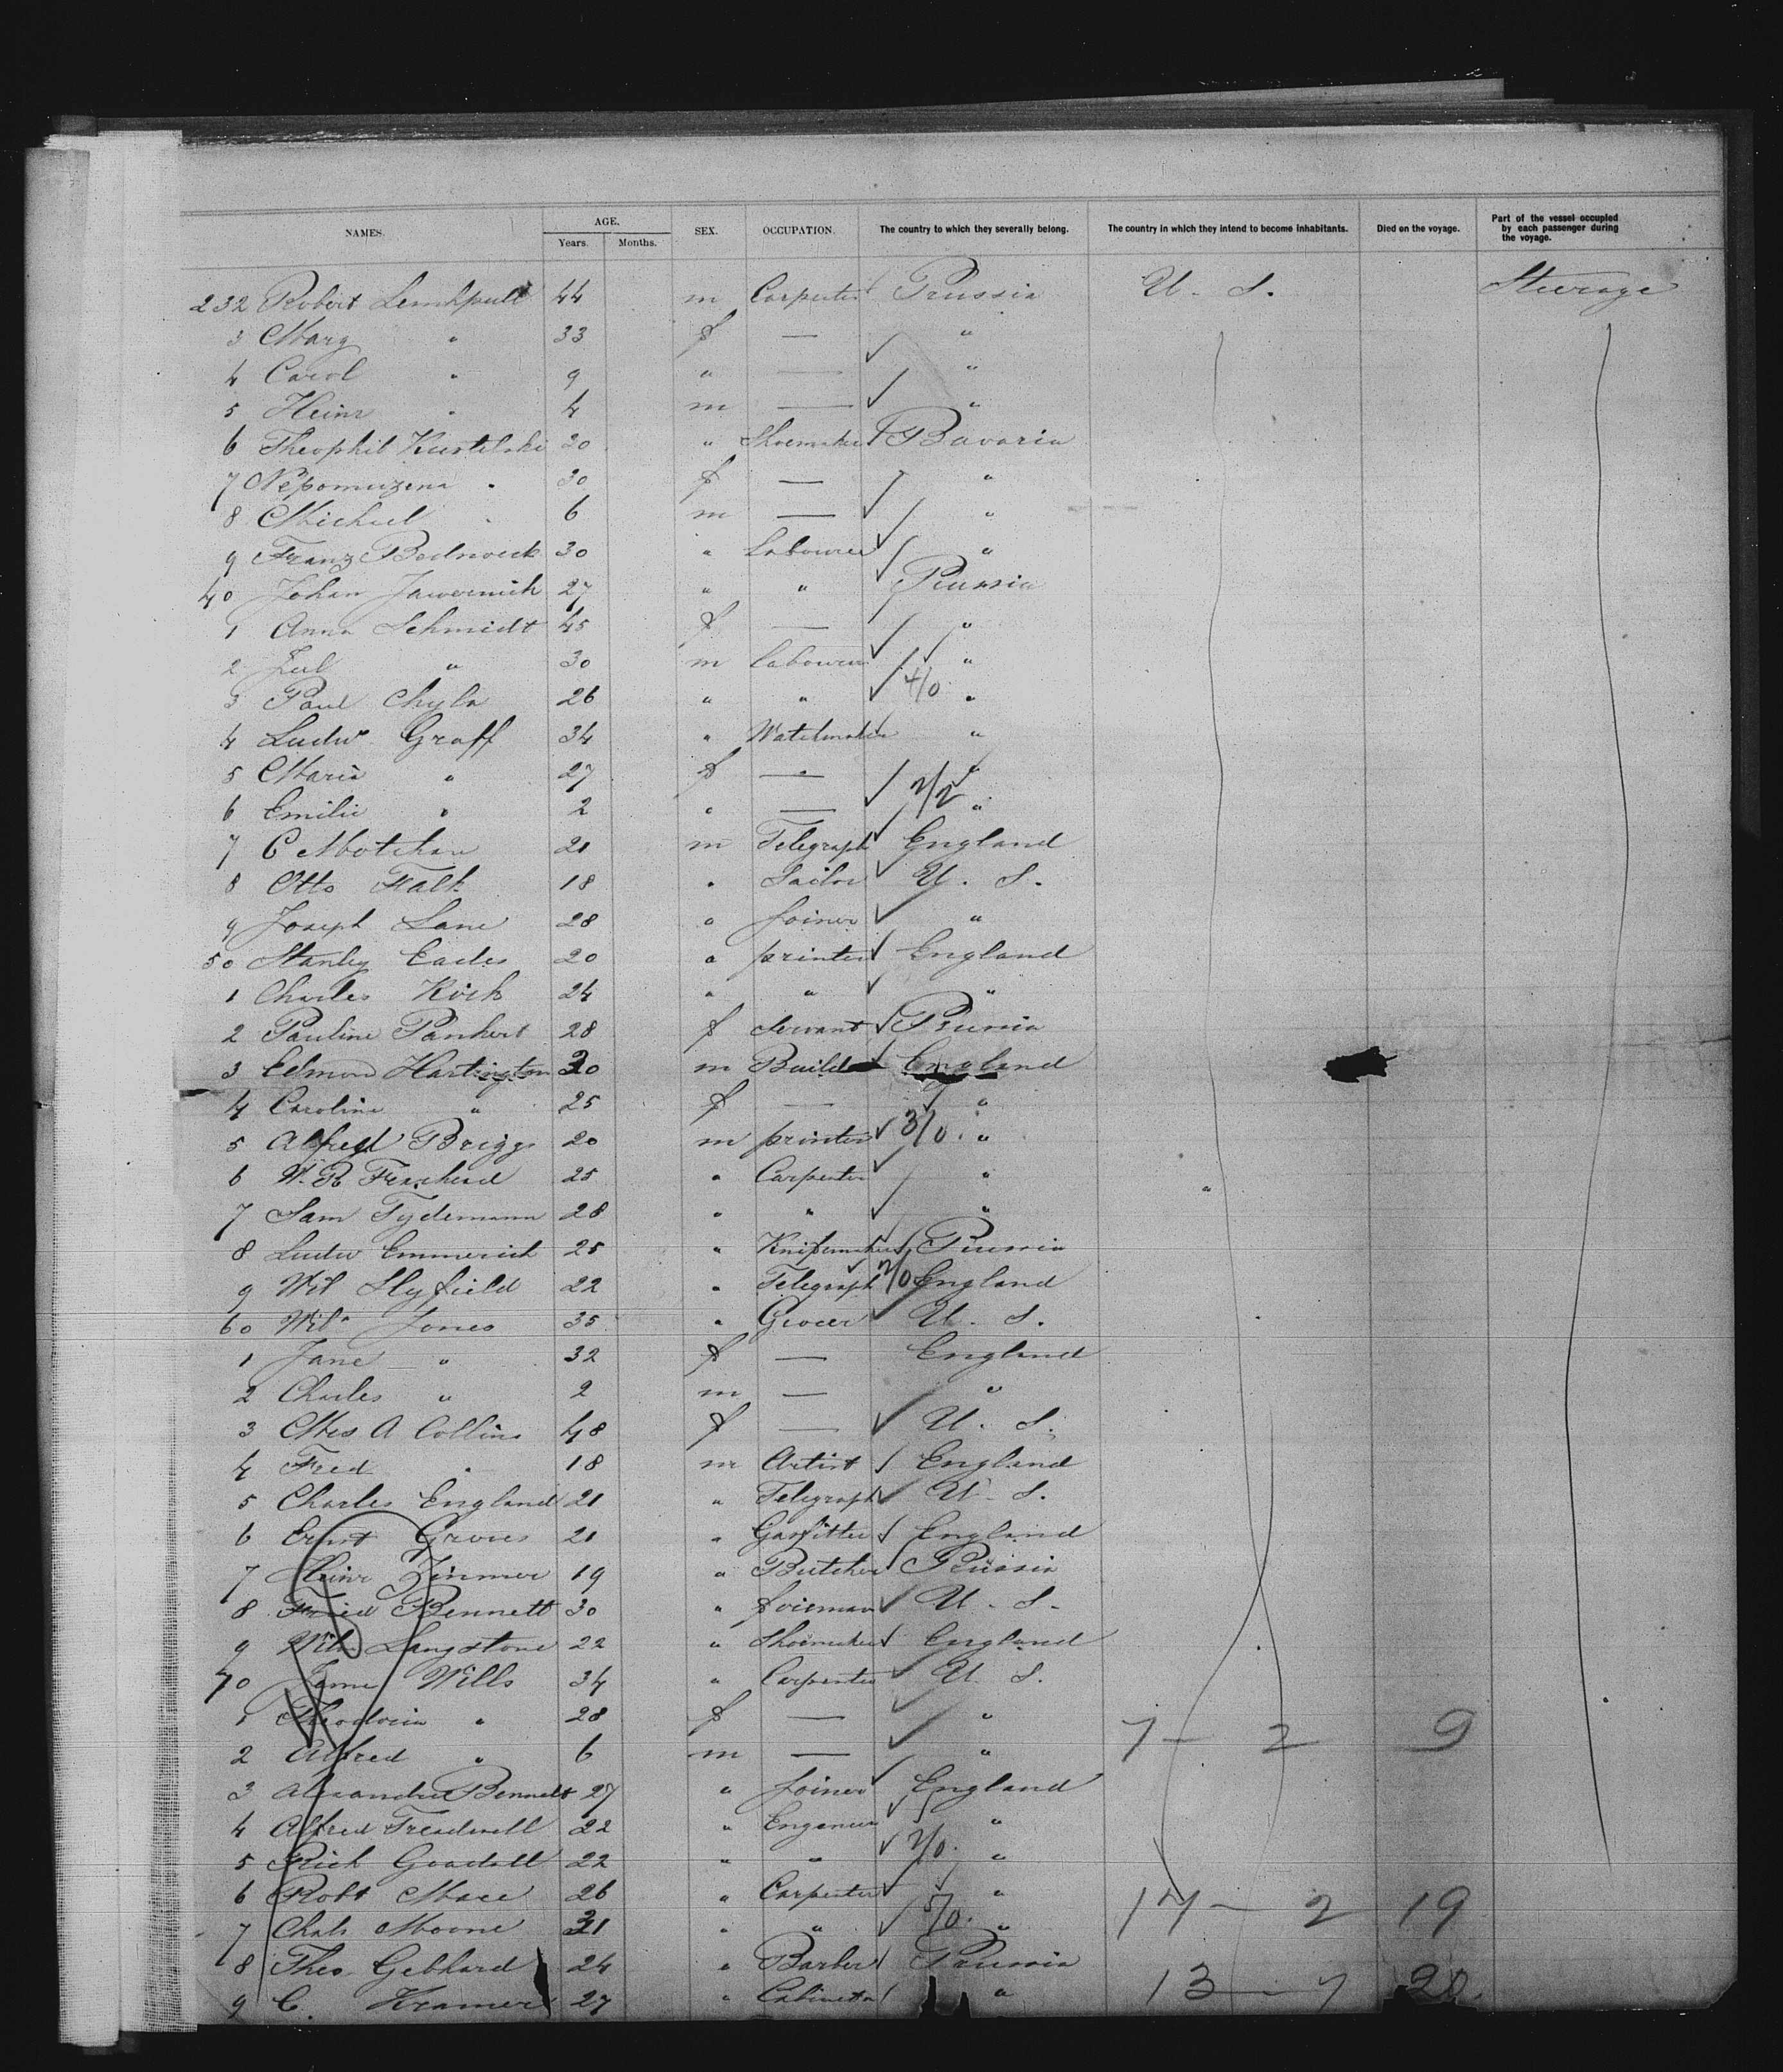 NAMES. AGE. SEX. OCCUPATION. The country to which they severally belong. The country in which they intend to become inhabitants. Died on the voyage. Part of the vessel occupied by each passenger during the voyage.
Years. Months.
232 Robert 44 m Carpenter Prussia U. S. Steerage
3 Mary " 33 f — "
4 Carol " 9 " — "
5 Heinr " 4 m — "
6 Theophil 20 " Shoemaker Bavaria
7 Nepomuzena " 30 f — "
8 Michael " 6 m — "
9 Franz 30 " Labourer "
40 Johan 27 " " Prussia
1 Anna Schmidt 45 f — "
2 Jul " 30 m Labourer "
3 Paul Chyla 26 " " 4/0 "
4 Ludw Graff 34 " Watchmaker "
5 Maria " 27 f — "
6 Emilie " 2 " — 2/2 "
7 C 21 m Telegraph England
8 Otto Falk 18 " Sailor U. S.
9 Joseph Lane 28 " joiner "
50 Stanley Eades 20 " printer England
1 Charles Koch 24 " " "
2 Pauline Pankert 28 f Servant Prussia
3 Edmond Hartington 30 m Build England
4 Caroline " 25 f — "
5 Alfred Briggs 20 m printer 3/0. "
6 W. R 25 " Carpenter "
7 Sam Tydemann 28 " " "
8 Ludw Emmerich 25 " Knifemaker Prussia
9 Wil Slyfield 22 " Telegraph 2/0 England
60 Wilm Jones 35 " Grocer U. S.
1 Jane " 32 f — England
2 Charles " 2 m — "
3 Mrs A Collins 48 f — U. S.
4 Fred " 18 m Artist England
5 Charles England 21 " Telegraph U. S.
6 Ernst 21 " Gasfitter England
7 Heinr Zimmer 19 " Butcher Prussia
8 Fried Bennett 30 " foreman U. S.
9 Wilm Langstone 22 " Shoemaker England
70 James Wills 34 " Carpenter U. S.
1 Theodoria " 28 f — " 7 — 2 9
2 Alfred " 6 m — "
3 Alexander Bennett 27 " joiner England
4 Alfred Treadwell 22 " Engeneer "
5 Rich Goodall 22 " " 2/0. "
6 Robt Mace 26 " Carpenter " 17 — 2 19
7 Chals Moone 31 " " 5/0. "
8 Theo Gebhard 24 " Barber Prussia
9 C. Kramer 27 " " 13 — 7 20.